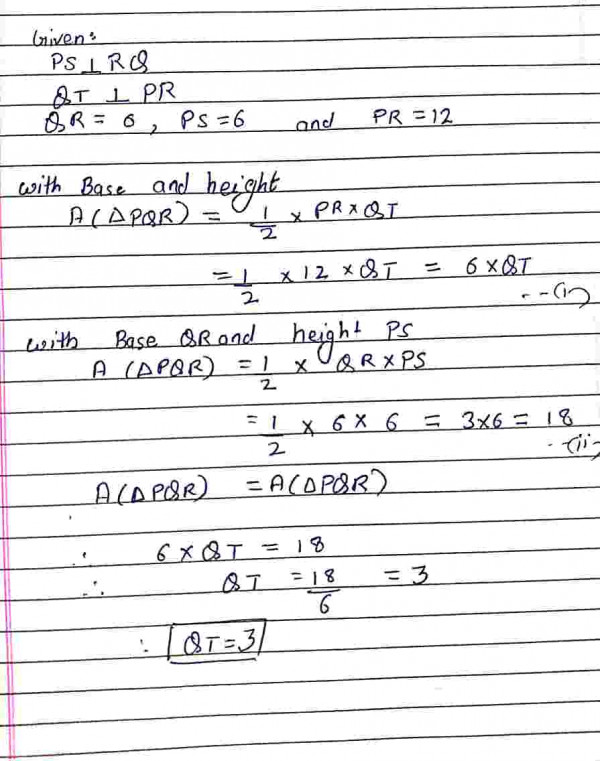 Given:
PS ⊥ RQ
QT ⊥ PR
QR = 6, PS = 6 and PR = 12
with Base and height
A(△PQR) = 1/2 × PR × QT
= 1/2 × 12 × QT = 6 × QT
--(i)
with Base QR and height PS
A (△PQR) = 1/2 × QR × PS
= 1/2 × 6 × 6 = 3×6 = 18
--(ii)
A(△PQR) = A(△PQR)
∴ 6 × QT = 18
∴ QT = 18/6 = 3
∴ QT = 3